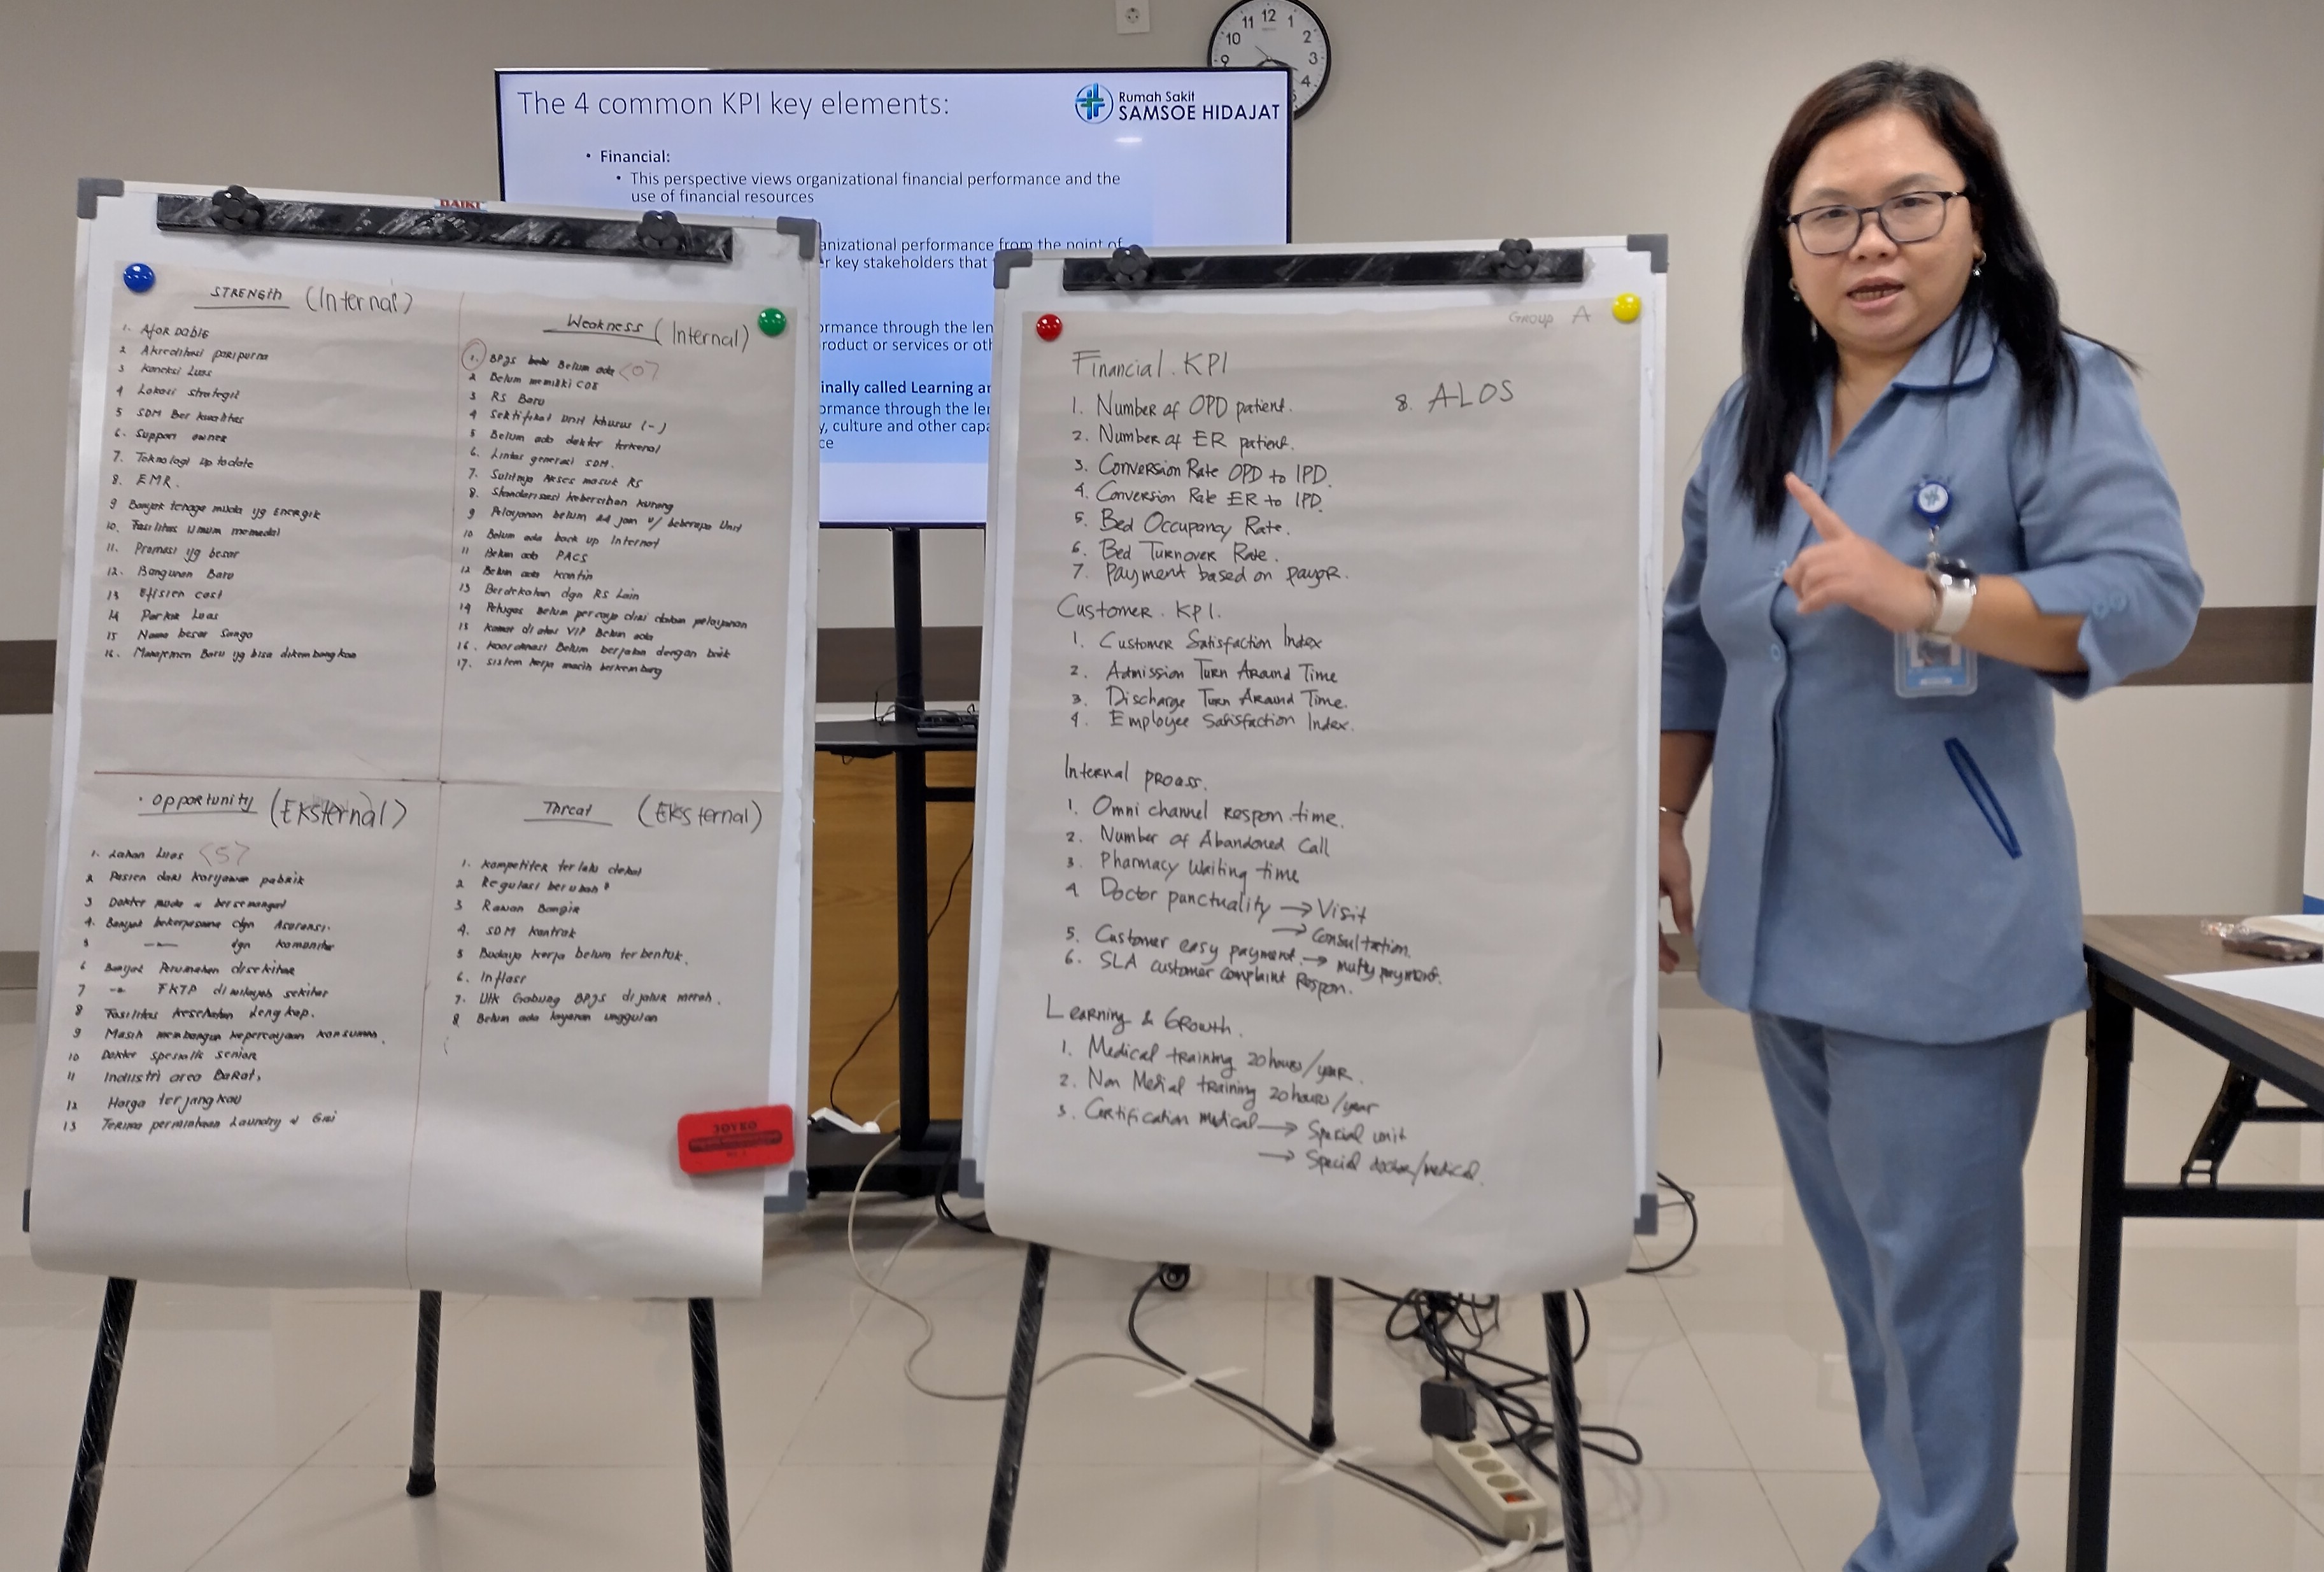 11 12 1
10 2
9 3
4
The 4 common KPI key elements:
Rumah Sakit
SAMSOE HIDAJAT
• Financial:
• This perspective views organizational financial performance and the
use of financial resources
anizational performance from the point of
r key stakeholders that
ormance through the len
roduct or services or oth
inally called Learning an
ormance through the le
y, culture and other capa
ce
DAIKI
STRENGTH (Internal)
1. AfORDABLE
2 Akreditasi paripurna
3 Koneksi Luas
4 Lokasi strategis
5 SDM Ber kualitas
6. Support owner
7. Teknologi Up to date
8. EMR.
9 Banyak tenaga muda yg Energik
10. Fasilitas Umum memadai
11. Promosi yg besar
12. Bangunan Baru
13 Efisien cost
14 Parkir Luas
15 Nama besar Sango
16. Manajemen Baru yg bisa dikembangkan
Weakness (Internal)
1. BPJS Belum ada <0>
2 Belum memiliki COB
3 RS Baru
4 Sertifikat Unit khusus (-)
5 Belum ada dokter terkenal
6. Lintas generasi SDM.
7. Sulitnya Akses masuk RS
8. Standarisasi kebersihan kurang
9 Pelayanan belum 24 jam u/ beberapa Unit
10 Belum ada back up Internet
11 Belum ada PACS
12 Belum ada kantin
13 Berdekatan dgn RS Lain
14 Petugas Belum percaya diri dalam pelayanan
15 Kamar di atas VIP Belum ada
16. koordinasi Belum berjalan dengan baik
17. Sistem kerja masih berkembang
• Opportunity (EKSternal)
1. Lahan Luas <5>
2 Pasien dari karyawan pabrik
3 Dokter muda & bersemangat
4. Banyak bekerjasama dgn Asuransi.
5 —"— dgn komunitas
6 Banyak Perumahan disekitar
7 -"- FKTP di wilayah sekitar
8 Fasilitas kesehatan lengkap.
9 Masih membangun kepercayaan konsumen.
10 Dokter spesialis senior
11 Industri area Barat,
12 Harga terjangkau
13 Terima permintaan Laundry & Gizi
Threat (EKSternal)
1. Kompetitor terlalu dekat
2 Regulasi berubah²
3 Rawan Banjir
4. SDM kontrak
5 Budaya kerja belum terbentuk.
6. Inflasi
7. Utk Gabung BPJS di jalur merah.
8 Belum ada layanan unggulan
JOYKO
GROUP A
Financial KPI
1. Number of OPD patient.
2. Number of ER patient.
3. Conversion Rate OPD to IPD.
4. Conversion Rate ER to IPD.
5. Bed Occupancy Rate.
6. Bed Turnover Rate.
7. Payment based on payor.
8. ALOS
Customer KPI.
1. Customer Satisfaction Index
2. Admission Turn Around Time
3. Discharge Turn Around Time.
4. Employee Satisfaction Index.
Internal proass.
1. Omni channel Respon time.
2. Number of Abandoned Call
3. Pharmacy Waiting time
4 Doctor punctuality → Visit
→ Consultation.
5. Customer easy payment. → multy payment.
6. SLA customer complaint Respon.
Learning & Growth.
1. Medical training 20 hours/year.
2. Non Medial training 20 hours/year
3. Certification medical → Special unit
→ Special doctor/medical.